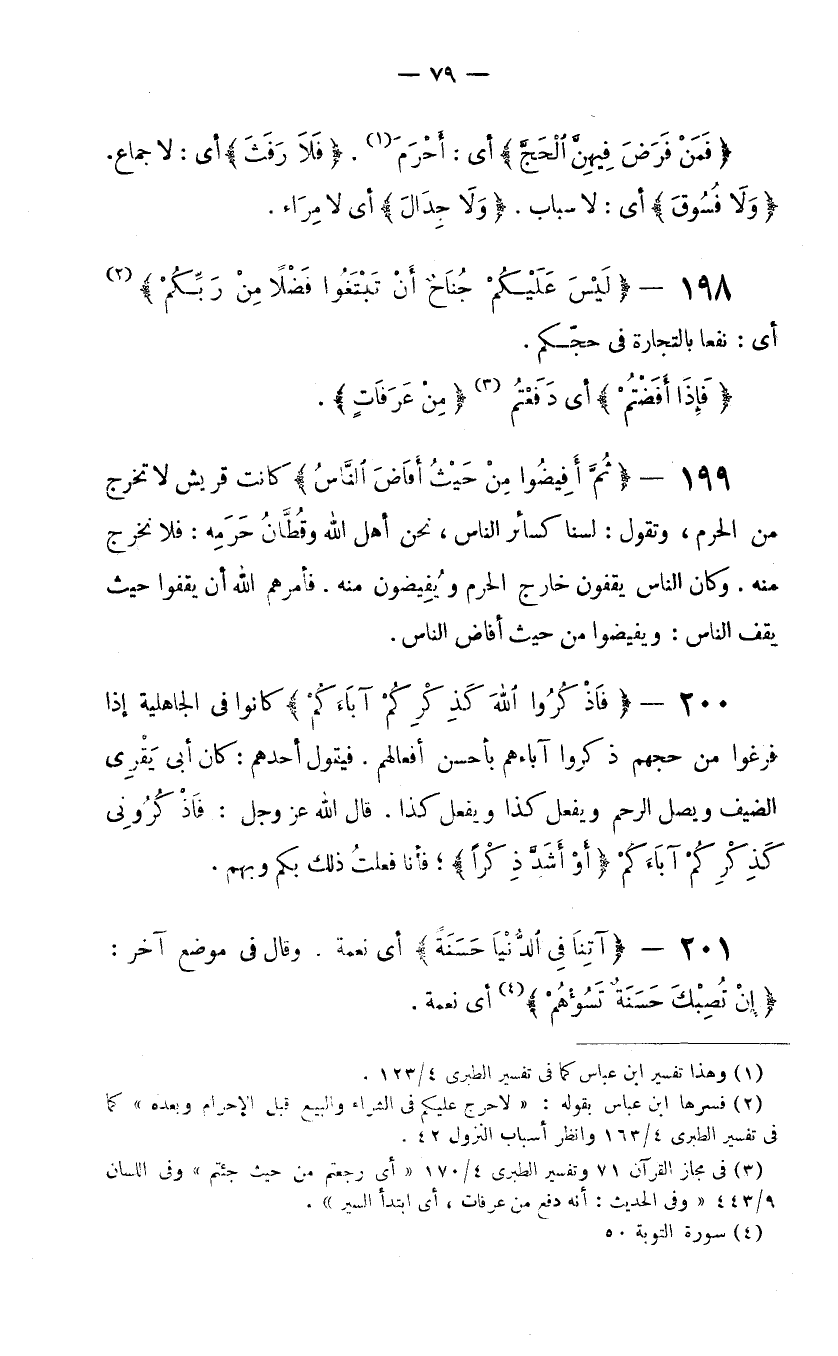 — ٧٩ —
﴿ فَمَنْ فَرَضَ فِيهِنَّ ٱلْحَجَّ ﴾ أى : أَحْرَمَ (١) . ﴿ فَلَا رَفَثَ ﴾ أى : لا جماع.
﴿ وَلَا فُسُوقَ ﴾ أى : لا سباب . ﴿ وَلَا جِدَالَ ﴾ أى لا مِرَاء .
١٩٨ — ﴿ لَيْسَ عَلَيْكُمْ جُنَاحٌ أَنْ تَبْتَغُوا فَضْلًا مِنْ رَبِّكُمْ ﴾ (٢)
أى : نفعا بالتجارة فى حجّكم .
﴿ فَإِذَا أَفَضْتُمْ ﴾ أى دَفَعْتُم (٣) ﴿ مِنْ عَرَفَاتٍ ﴾ .
١٩٩ — ﴿ ثُمَّ أَفِيضُوا مِنْ حَيْثُ أَفَاضَ ٱلنَّاسُ ﴾ كانت قريش لا تخرج
من الحرم ، وتقول : لسنا كسائر الناس ، نحن أهل الله وقُطَّانُ حَرَمِه : فلا نخرج
منه . وكان الناس يقفون خارج الحرم ويُفِيضون منه . فأمرهم الله أن يقفوا حيث
يقف الناس : ويفيضوا من حيث أفاض الناس .
٢٠٠ — ﴿ فَاذْكُرُوا ٱللهَ كَذِكْرِكُمْ آبَاءَكُمْ ﴾ كانوا فى الجاهلية إذا
فرغوا من حجهم ذكروا آباءهم بأحسن أفعالهم . فيقول أحدهم : كان أبى يَقْرِى
الضيف ويصل الرحم ويفعل كذا ويفعل كذا . قال الله عز وجل : فَاذْكُرُونِى
كَذِكْرِكُمْ آبَاءَكُمْ ﴿ أَوْ أَشَدَّ ذِكْراً ﴾ ؛ فأنا فعلتُ ذلك بكم وبهم .
٢٠١ — ﴿ آتِنَا فِى ٱلدُّنْيَا حَسَنَةً ﴾ أى نعمة . وقال فى موضع آخر :
﴿ إِنْ تُصِبْكَ حَسَنَةٌ تَسُؤْهُمْ ﴾ (٤) أى نعمة .
(١) وهذا تفسير ابن عباس كما فى تفسير الطبرى ٤/١٢٣ .
(٢) فسرها ابن عباس بقوله : « لاحرج عليكم فى الشراء والبيع قبل الإحرام وبعده » كما
فى تفسير الطبرى ٤/١٦٣ وانظر أسباب النزول ٤٢ .
(٣) فى مجاز القرآن ٧١ وتفسير الطبرى ٤/١٧٠ « أى رجعتم من حيث جئتم » وفى اللسان
٩/٤٤٣ « وفى الحديث : أنه دفع من عرفات ، أى ابتدأ السير » .
(٤) سورة التوبة ٥٠